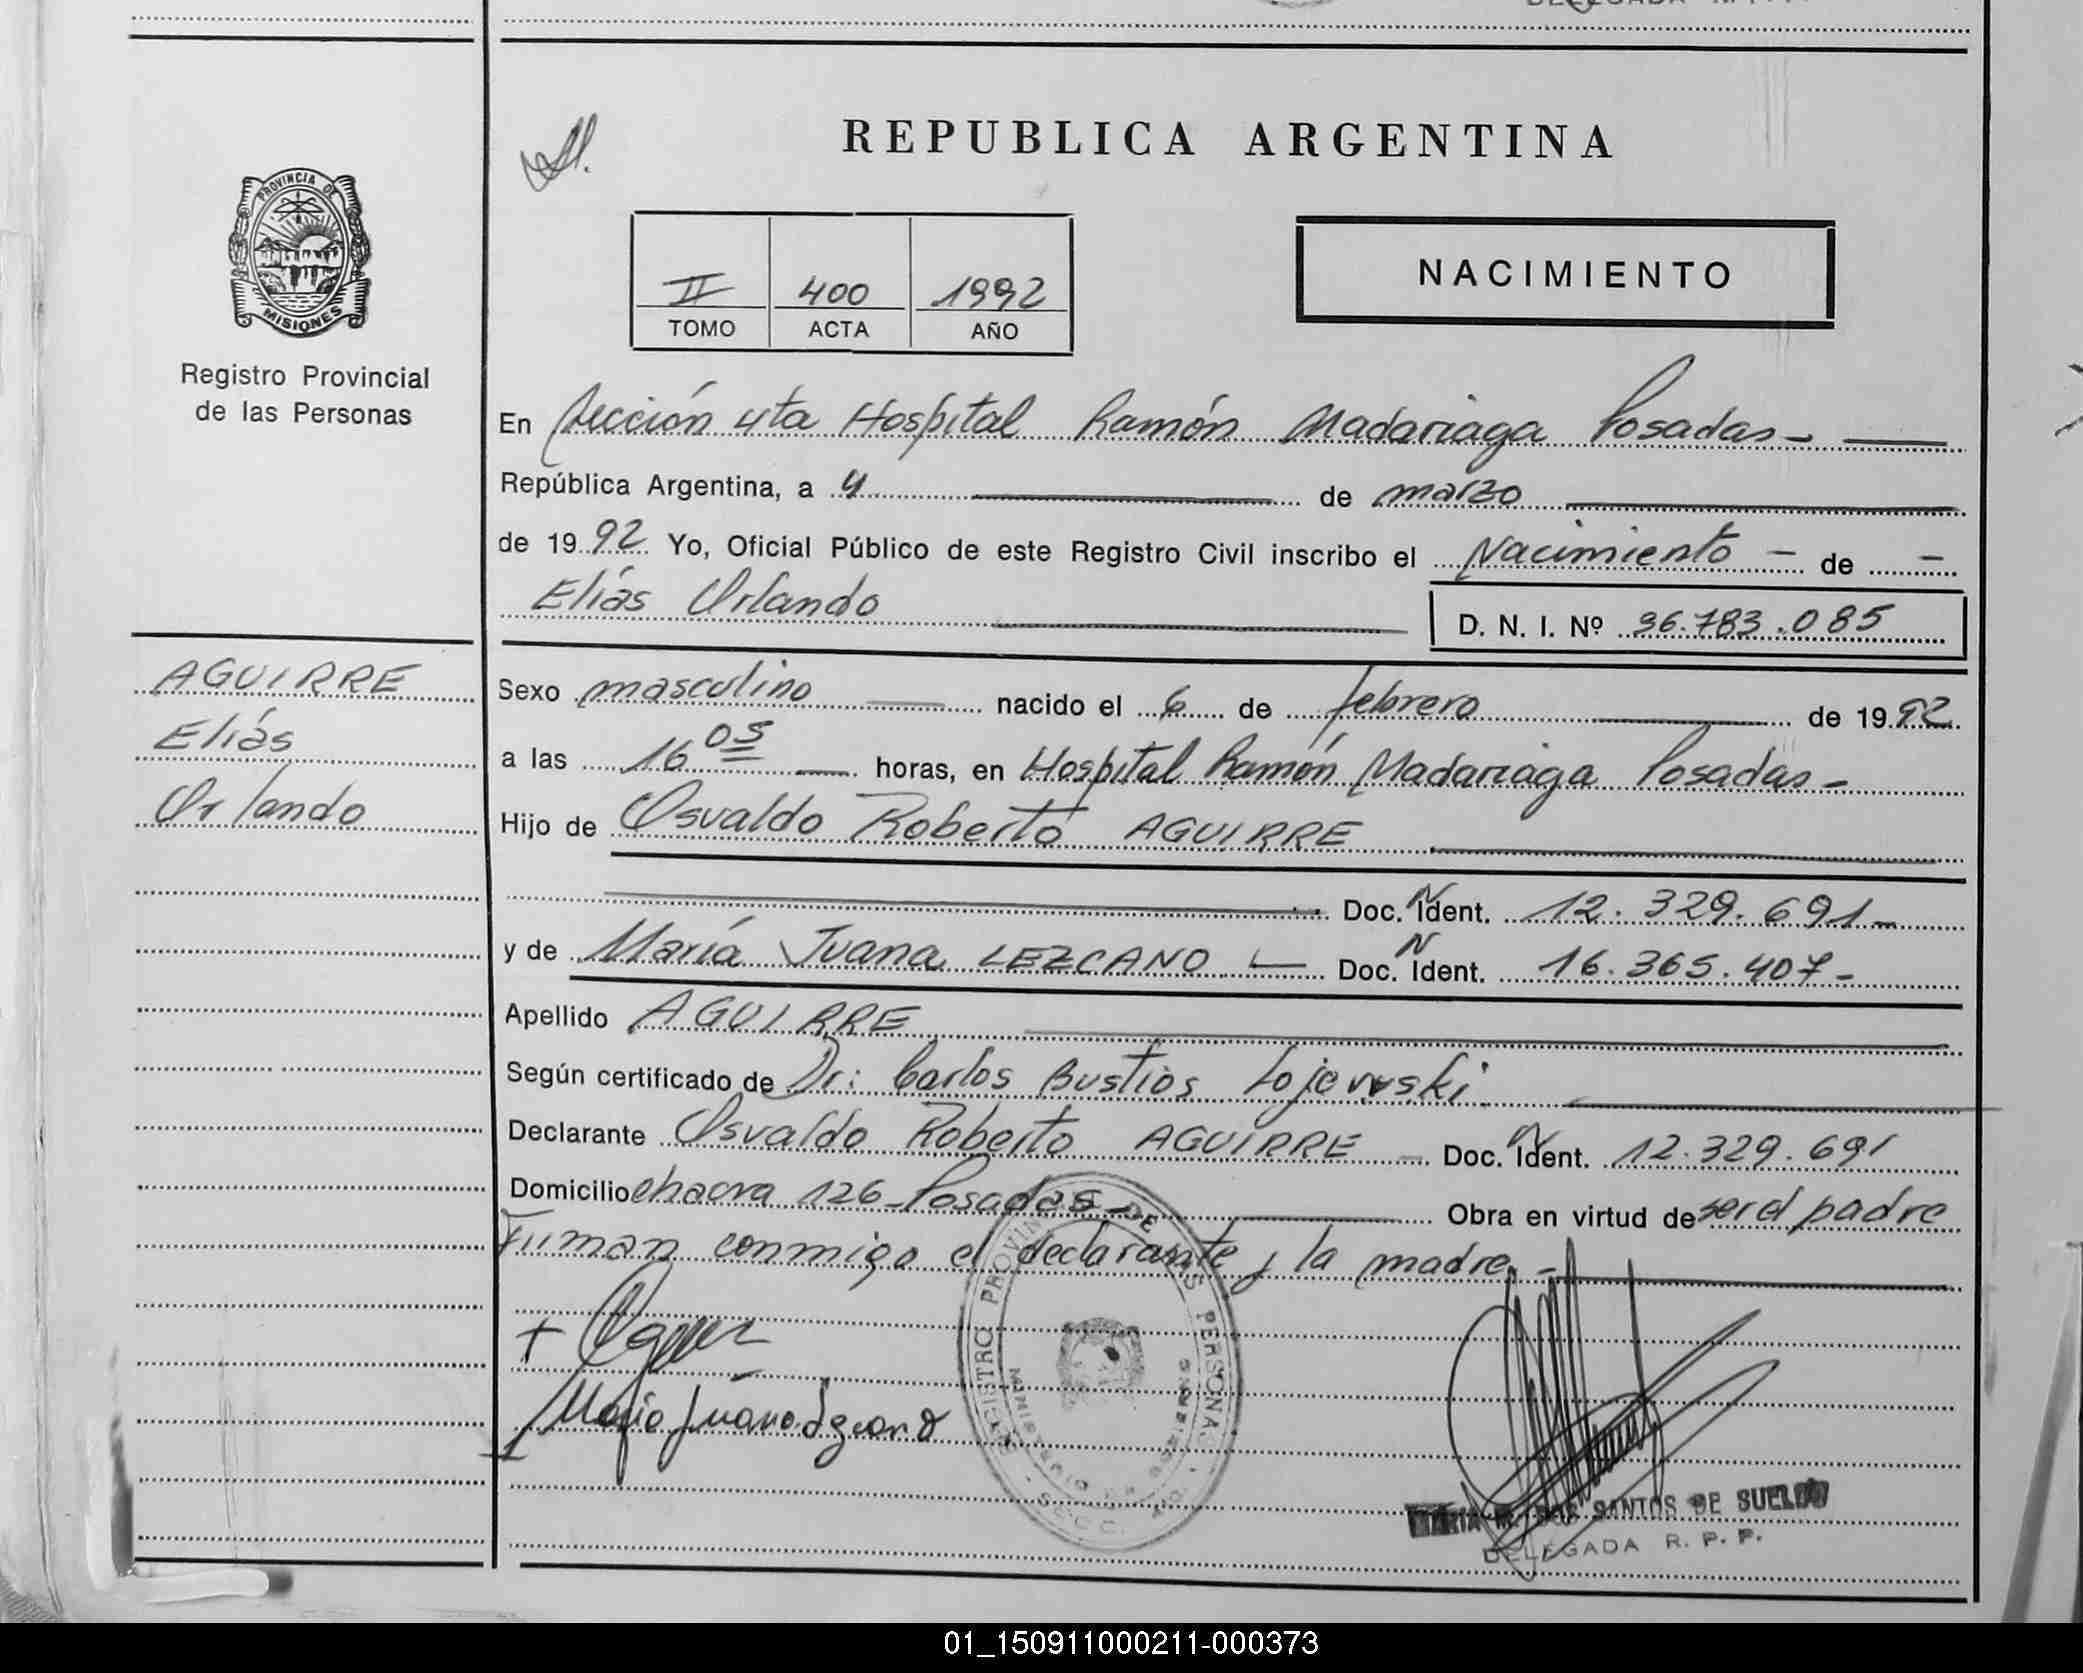 REPUBLICA ARGENTINA
PROVINCIA DE
MISIONES
Registro Provincial
de las Personas
II 400 1992
TOMO ACTA AÑO
NACIMIENTO
En Sección 4ta Hospital Ramón Madariaga Posadas-
República Argentina, a 4 de marzo
de 1992 Yo, Oficial Público de este Registro Civil inscribo el Nacimiento - de -
Elías Orlando
D. N. I. Nº 36.783.085
AGUIRRE
Elías
Orlando
Sexo masculino nacido el 6 de febrero de 1992
a las 16 05 horas, en Hospital Ramón Madariaga Posadas-
Hijo de Osvaldo Roberto AGUIRRE
Doc. N Ident. 12.329.691-
y de María Juana LEZCANO - Doc. N Ident. 16.365.407-
Apellido AGUIRRE
Según certificado de Dr: Carlos Bustios Lojewski
Declarante Osvaldo Roberto AGUIRRE - Doc. N Ident. 12.329.691
Domicilio chacra 126 - Posadas - Obra en virtud de ser el padre
Firman conmigo el declarante y la madre. -
REGISTRO PROVINCIAL DE LAS PERSONAS
MINISTERIO DE GOBIERNO
María Juana Lezcano
MARIA DOS SANTOS DE SUELDO
DELEGADA R. P. P.
01_150911000211-000373